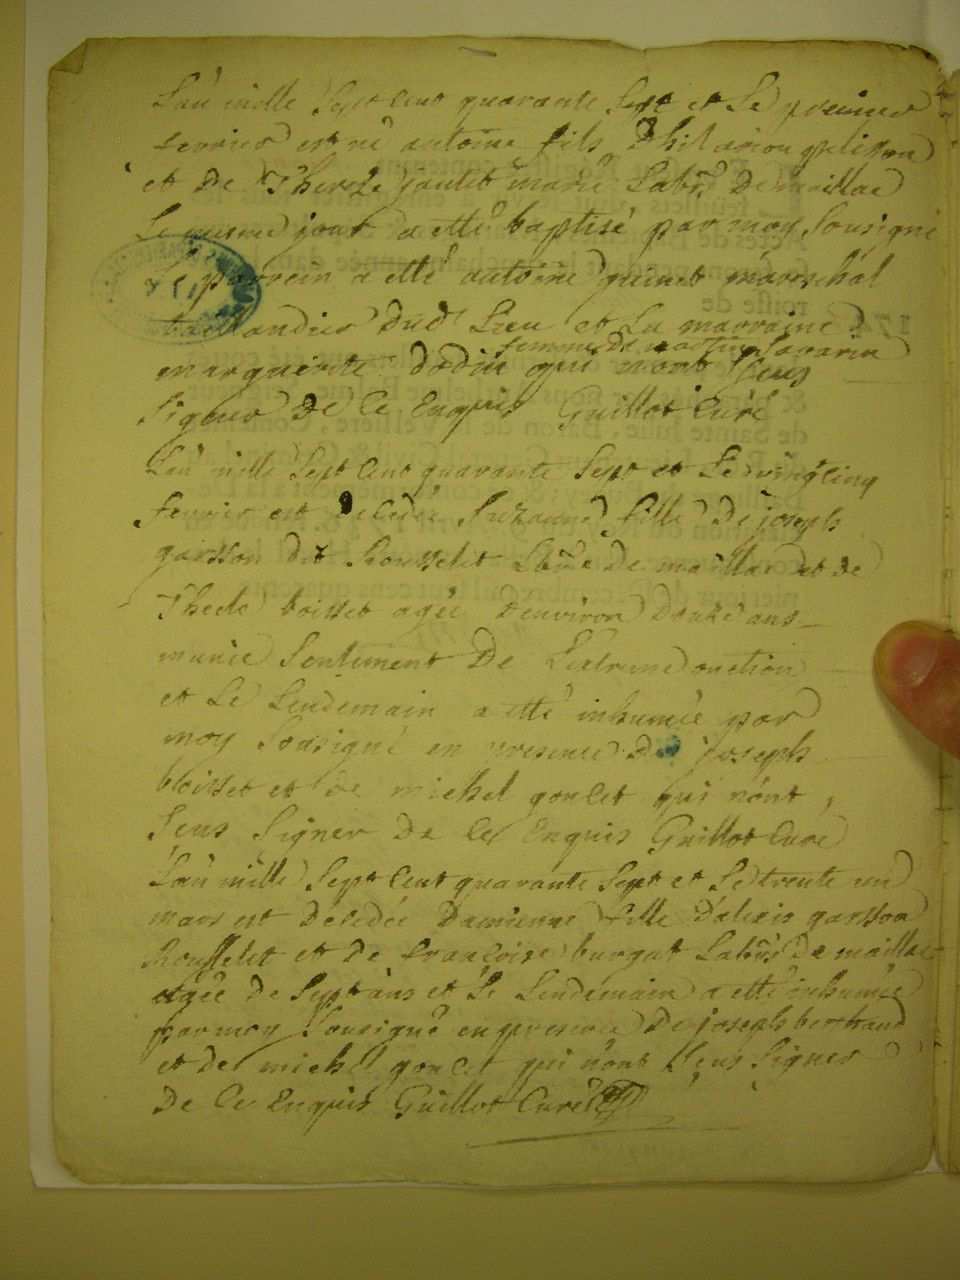 L'an mille Sept Cent quarante Sept et Le premier
fevrier est né antoine fils d'hilarion pelisson
et de Thereze jantet marié Labrs De maillac
Le meme jour a etté baptisé par moy Sousigné
Le parrein a etté antoine guinet mareschal
taillandier dud Lieu et La marraine
femme De Savarin
marguerite dodin qui n'ont Sceus
Signer de Ce Enquis Guillot Curé
L'an mille Sept Cent quarante Sept et Le vingt cinq
fevrier est decedée Suzanne fille De joseph
garsson dit Rousselet Labrs De maillac et de
Thecle boisset agée d'environ Douze ans
munie Seulement De L'extreme onction
et Le Lendemain a etté inhumée par
moy Sousigné en presence de joseph
boisset et de michel goulet qui n'ont
Sceus Signer De Ce Enquis Guillot Curé
L'an mille Sept Cent quarante Sept et Le trente un
mars est Decedée Damienne fille d'alexis garsson
Rousselet et de francoise burgat Labrs De maillac
agée de Sept ans et Le Lendemain a etté inhumée
par moy Sousigné en presence De joseph bertrand
et de michel goulet qui n'ont Sceus Signer
De Ce Enquis Guillot Curé